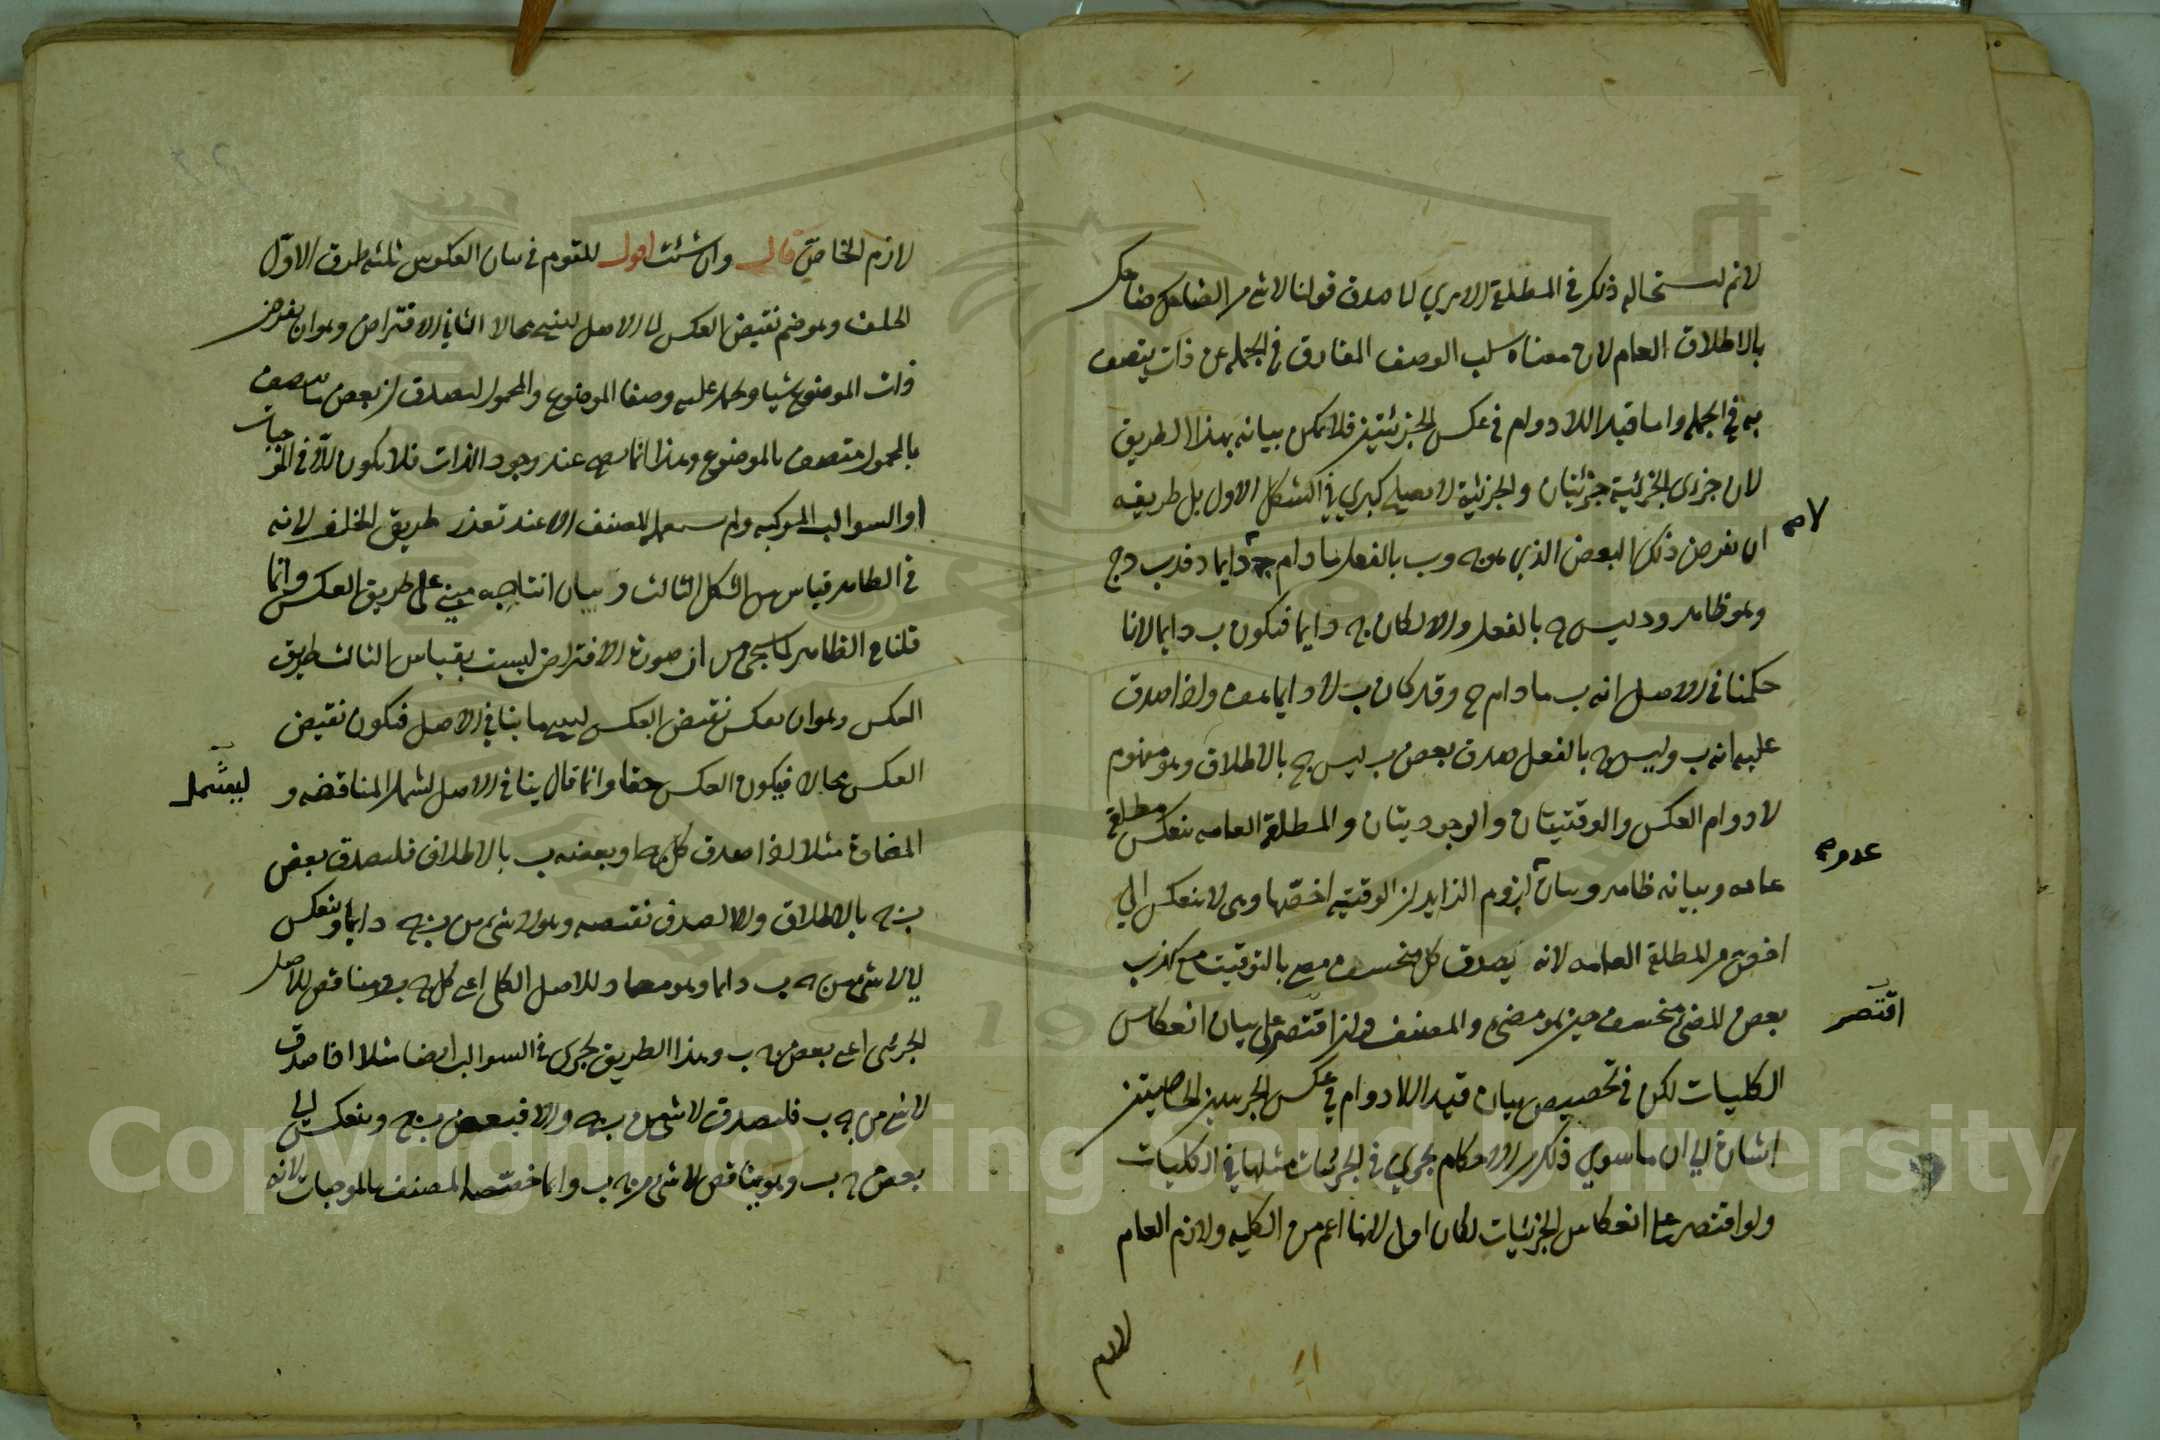 لانم استحاله ذلك في المطلقة الا يري لما صدق قولنا لا شئ من الضاحك ضاحك
بالاطلاق العام لان معناه سلب الوصف المفارق في الجملة عن ذات يتصف
به في الجملة واما قيد اللادوام في عكس الجزئيتين فلا يمكن بيانه بهذا الطريق
لان جزءى الجزئية جزئيتان والجزئية لا يصلح كبري في الشكل الاول بل طريقه
ان نفرض ذلك البعض الذي هو ج وب بالفعل مادام ج لا دايما د فد ب ود ج
وهو ظاهر ود ليس ج بالفعل والا لكان ج دايما فيكون ب دايما لانا
حكمنا في الاصل انه ب مادام ج وقد كان ب لا دايما هف واذا صدق
عليه انه ب وليس ج بالفعل صدق بعض ب ليس ج بالاطلاق وهو مفهوم
لادوام العكس والوقتيتان والوجوديتان والمطلقة العامه ينعكس مطلقة
عامه وبيانه ظاهر وبيان لزوم الزايد ان الوقتيه اخصها وهى لا ينعكس الى
اخص من المطلقة العامه لانه يصدق كل منخسف مضئ بالتوقيت مع كذب
بعض المضئ منخسف حين هو مضئ والمصنف وان اقتصر على بيان انعكاس
الكليات لكن في تخصيص بيان قيد اللادوام في عكس الجزئيتين الخاصيتين
اشارة الى ان ما سوي ذلك من الاحكام يجري في الجزئيات مثلها في الكليات
ولو اقتصر على انعكاس الجزئيات لكان اولى لانها اعم من الكليه ولازم العام
اقتصر
لازم
لازم الخاص قال وان شئت اقول للقوم في بيان العكوس ثلثه طرق الاوّل
الخلف وهو ضم نقيض العكس الى الاصل لينتج محالا الثاني الافتراض وهو ان يفرض
ذات الموضوع شيا ويحمل عليه وصفا الموضوع والمحمول ليصدق ان بعض ما يتصف
بالمحمول متصف بالموضوع وهذا انما يصح عند وجود الذات فلا يكون الا في الموجبات
او السوالب المركبه ولم يستعمله المصنف الا عند تعذر طريق الخلف لانه
في الظاهر قياس من الشكل الثالث وبيان انتاجه مبنى على طريق العكس وانما
قلنا في الظاهر لما سيجئ من ان صورة الافتراض ليست بقياس الثالث طريق
العكس وهو ان يعكس نقيض العكس ليحصل ما ينافي الاصل فيكون نقيض
العكس محالا فيكون العكس حقا وانما قال ينافي الاصل لشمل المناقضه و
ليشمل
المضادة مثلا اذا صدق كل ج او بعضه ب بالاطلاق فليصدق بعض
ب ج بالاطلاق والا لصدق نقيضه وهو لا شئ من ب ج دايما وينعكس
الى لا شئ من ج ب دايما وهو مضاد للاصل الكلى اعى كل ج ب ومناقض للاصل
الجزئى اعى بعض ج ب وهذا الطريق يجرى في السوالب ايضا مثلا اذا صدق
لا شئ من ج ب فليصدق لا شئ من ب ج والا فبعض ب ج وينعكس الى
بعض ج ب وهو يناقض لا شئ من ج ب وانما خصّصه المصنف بالموجبات لانه